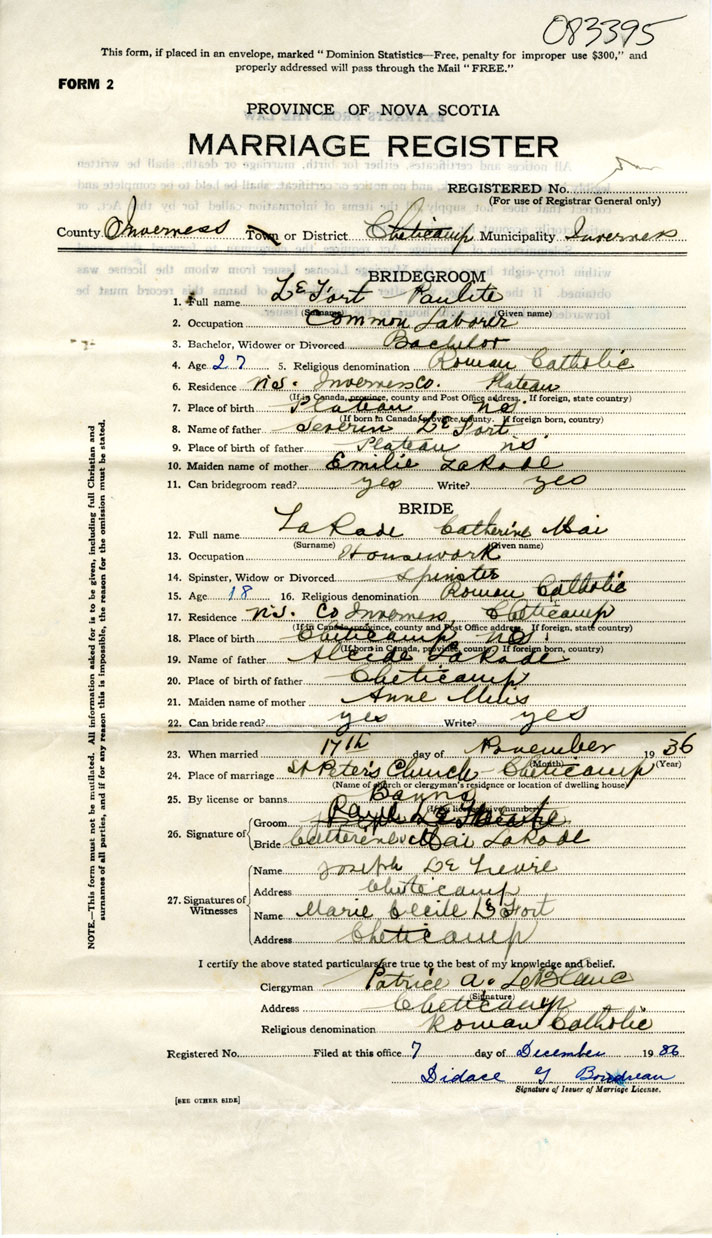 083395
This form, if placed in an envelope, marked "Dominion Statistics—Free, penalty for improper use $300," and
properly addressed will pass through the Mail "FREE."
FORM 2
PROVINCE OF NOVA SCOTIA
MARRIAGE REGISTER
REGISTERED No.
(For use of Registrar General only)
County Inverness Town or District Cheticamp Municipality Inverness
BRIDEGROOM
1. Full name LeFort Paulite
(Surname) (Given name)
2. Occupation Common Laborer
3. Bachelor, Widower or Divorced Bachelor
4. Age 27 5. Religious denomination Roman Catholic
6. Residence N.S. Inverness Co. Plateau
(If in Canada, province, county and Post Office address. If foreign, state country)
7. Place of birth Plateau N.S.
(If born in Canada, province, county. If foreign born, country)
8. Name of father Severin LeFort
9. Place of birth of father Plateau N.S.
10. Maiden name of mother Emilie LaRade
11. Can bridegroom read? yes Write? yes
BRIDE
12. Full name LaRade Catherine Mai
(Surname) (Given name)
13. Occupation Housework
14. Spinster, Widow or Divorced Spinster
15. Age 18 16. Religious denomination Roman Catholic
17. Residence N.S. Co Inverness, Cheticamp
(If in Canada, province, county and Post Office address. If foreign, state country)
18. Place of birth Cheticamp, N.S.
(If born in Canada, province, county. If foreign born, country)
19. Name of father Alcide LaRade
20. Place of birth of father Cheticamp
21. Maiden name of mother Anne
22. Can bride read? yes Write? yes
23. When married 17th day of November 1936
(Month) (Year)
24. Place of marriage St Peter's Church Cheticamp
(Name of church or clergyman's residence or location of dwelling house)
25. By license or banns Banns
(If by license give number)
26. Signature of
Groom
Bride Catherine Mai LaRade
27. Signatures of Witnesses
Name Joseph
Address Cheticamp
Name Marie Cecile LeFort
Address Cheticamp
I certify the above stated particulars are true to the best of my knowledge and belief.
Clergyman Patrice A. LeBlanc
(Signature)
Address Cheticamp
Religious denomination Roman Catholic
Registered No. Filed at this office 7 day of December 1936
Didace G Boudreau
Signature of Issuer of Marriage License.
[SEE OTHER SIDE]
NOTE.—This form must not be mutilated. All information asked for is to be given, including full Christian and
surnames of all parties, and if for any reason this is impossible, the reason for the omission must be stated.